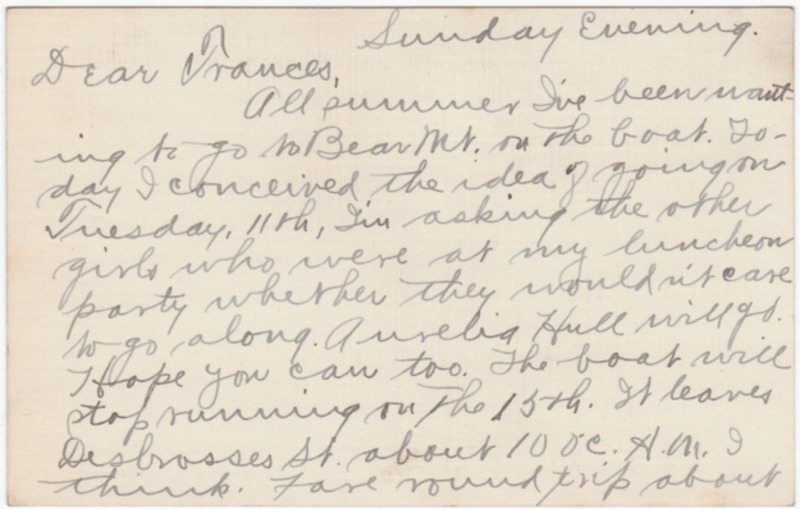 Sunday Evening.
Dear Frances,
All summer I've been want-
ing to go to Bear Mt. on the boat. To-
day I conceived the idea of going on
Tuesday, 11th, I'm asking the other
girls who were at my luncheon
party whether they wouldn't care
to go along. Aurelia Hull will go.
Hope you can too. The boat will
stop running on the 15th. It leaves
Desbrosses St. about 10 oc. A.M. I
think. Fare round trip about